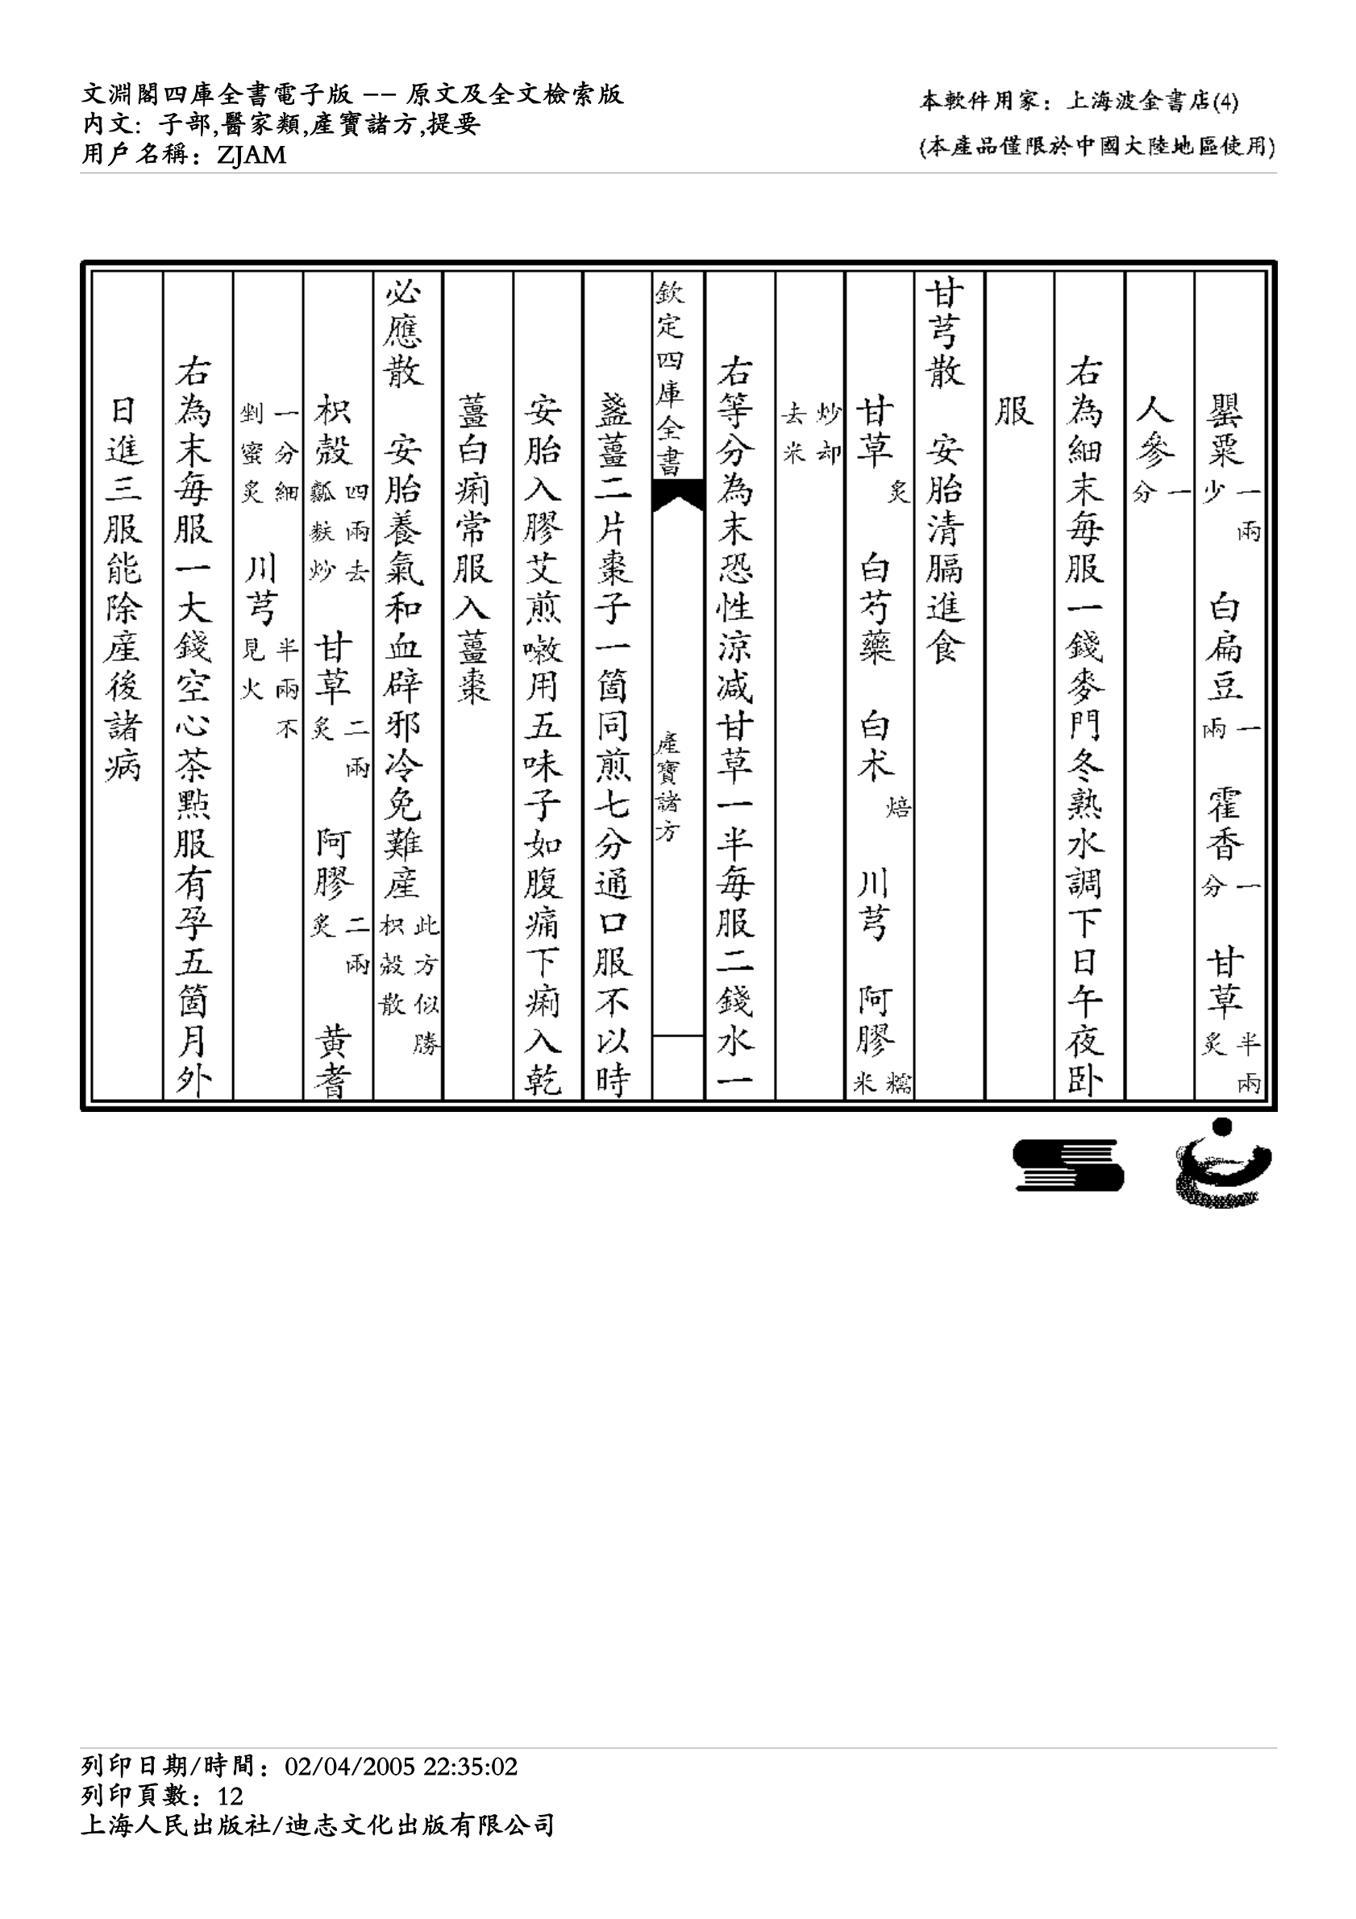 文淵閣四庫全書電子版 -- 原文及全文檢索版
內文: 子部,醫家類,產寶諸方,提要
用戶名稱: ZJAM
本軟件用家: 上海波金書店(4)
(本產品僅限於中國大陸地區使用)
罌粟一兩少 白扁豆一兩 霍香一分 甘草半兩炙
人參一分
右為細末每服一錢麥門冬熟水調下日午夜卧
服
甘芎散 安胎清膈進食
甘草炙 白芍藥 白术焙 川芎 阿膠糯米
炒却去米
右等分為末恐性涼减甘草一半每服二錢水一
欽定四庫全書 產寶諸方
盞薑二片棗子一箇同煎七分通口服不以時
安胎入膠艾煎嗽用五味子如腹痛下痢入乾
薑白痢常服入薑棗
必應散 安胎養氣和血辟邪冷免難產此方似勝枳殻散
枳殻四兩去瓤麩炒 甘草二兩炙 阿膠二兩炙 黄耆
一分細剉蜜炙 川芎半兩不見火
右為末每服一大錢空心茶點服有孕五箇月外
日進三服能除産後諸病
列印日期/時間: 02/04/2005 22:35:02
列印頁數: 12
上海人民出版社/迪志文化出版有限公司